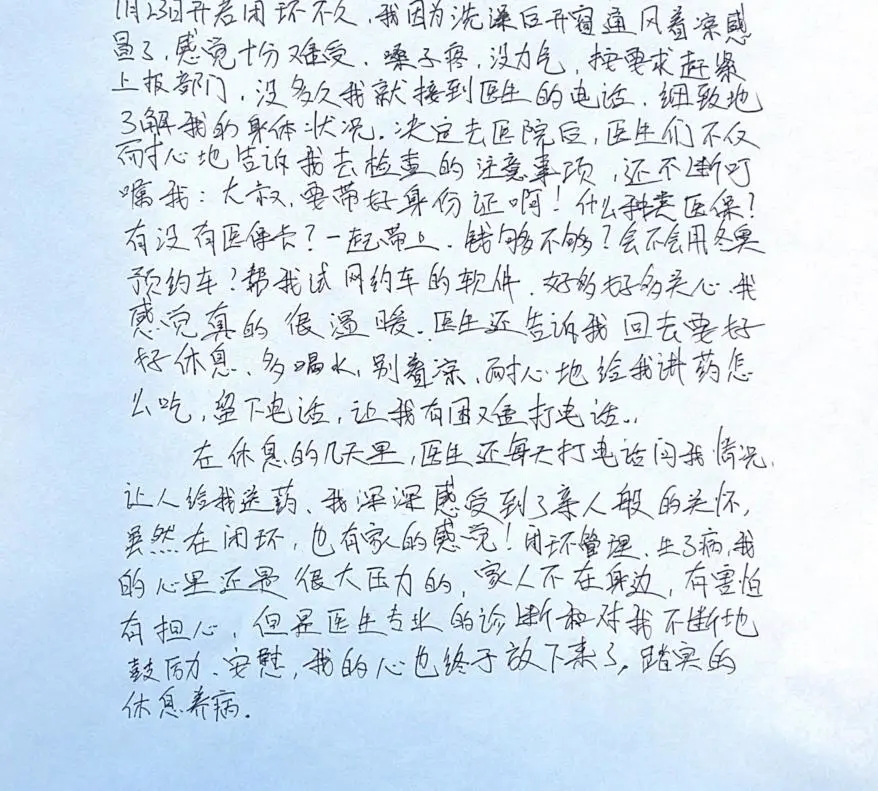 1月23日开启闭环不久,我因为洗澡后开窗通风着凉感
冒了,感觉十分难受,嗓子疼,没力气,按要求赶紧
上报部门,没多久我就接到医生的电话,细致地
了解我的身体状况。决定去医院后,医生们不仅
耐心地告诉我去检查的注意事项,还不断叮
嘱我:大叔,要带好身份证啊!什么种类医保?
有没有医保卡?一起带上,钱够不够?会不会用冬奥
预约车?帮我试网约车的软件,好多好多关心,我
感觉真的很温暖。医生还告诉我回去要好
好休息、多喝水,别着凉,耐心地给我讲药怎
么吃,留下电话,让我有困难打电话..
在休息的几天里,医生还每天打电话问我情况,
让人给我送药、我深深感受到了亲人般的关怀,
虽然在闭环,也有家的感觉!闭环管理、生了病,我
的心里还是很大压力的,家人不在身边,有害怕
有担心,但是医生专业的诊断和对我不断地
鼓励、安慰,我的心也终于放下来了,踏实的
休息养病.